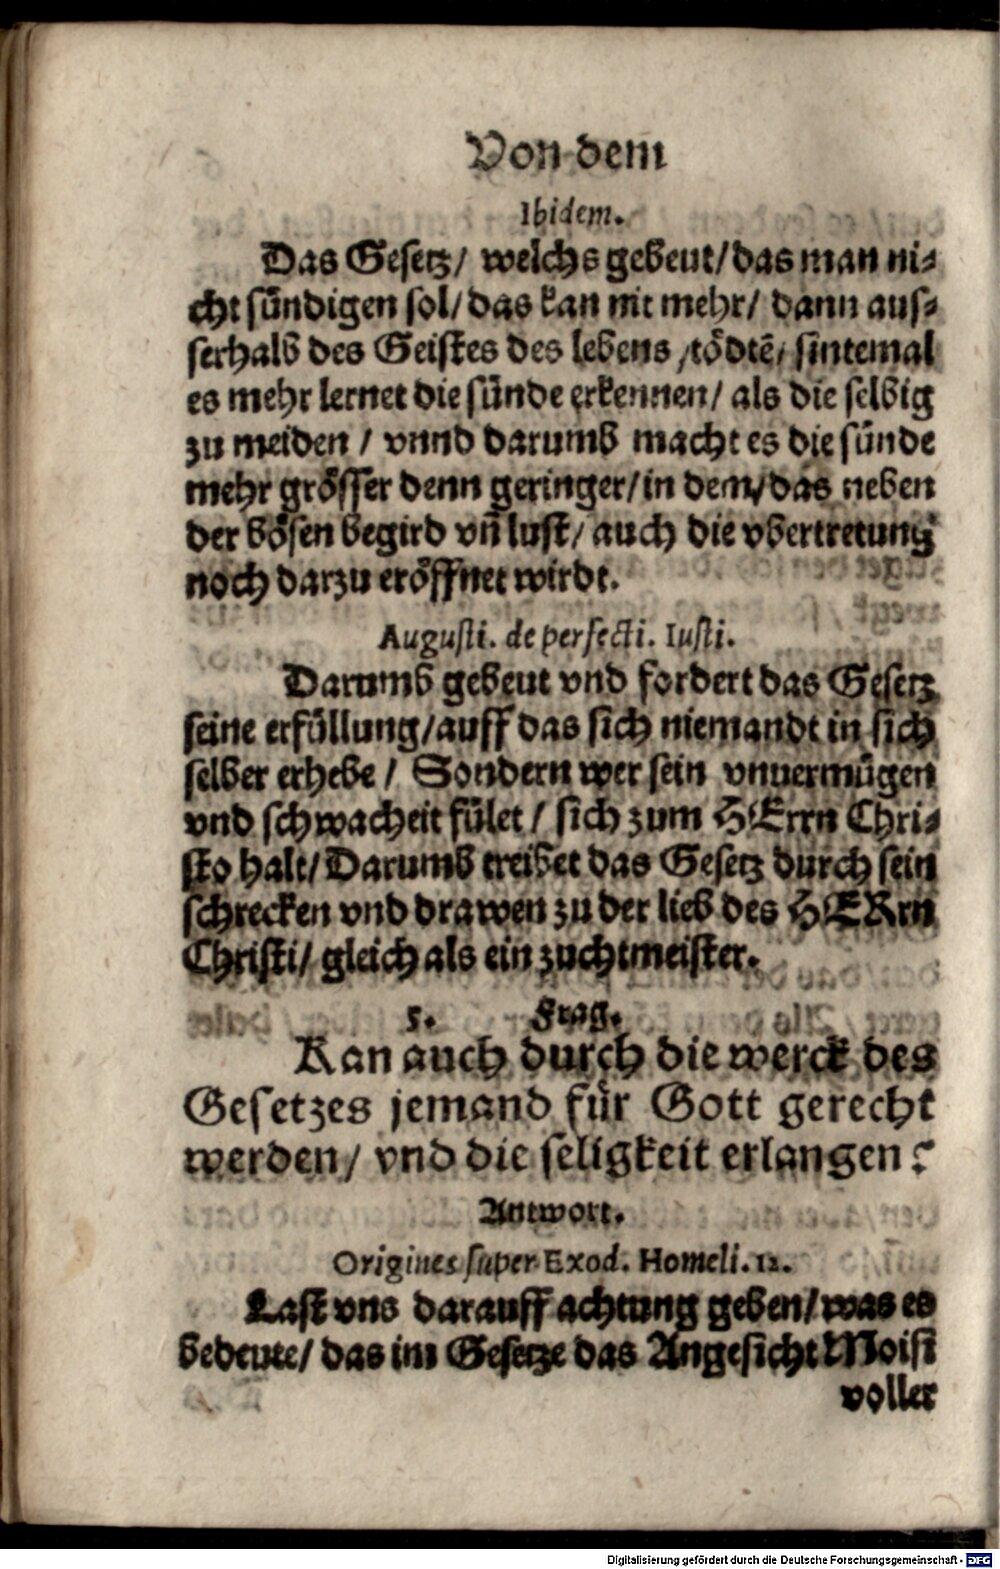 Von dem
Ibidem.
Das Gesetz/ welchs gebeut/das man ni⸗
cht sündigen sol/das kan nit mehr/ dann aus⸗
serhalb des Geistes des lebens /tödtē/ sintemal
es mehr lernet die sünde erkennen/ als die selbig
zu meiden / vnnd darumb macht es die sünde
mehr grösser denn geringer/in dem/das neben
der bösen begird vñ lust/ auch die vbertretung
noch darzu eröffnet wirdt.
Augusti. de perfecti. Iusti.
Darumb gebeut vnd fordert das Gesetz
seine erfüllung/auff das sich niemandt in sich
selber erhebe / Sondern wer sein vnuermügen
vnd schwacheit fület / sich zum HErrn Chri⸗
sto halt/Darumb treibet das Gesetz durch sein
schrecken vnd drawen zu der lieb des HERrn
Christi/ gleich als ein zuchtmeister.
5. Frag.
Kan auch durch die werck des
Gesetzes jemand für Gott gerecht
werden/ vnd die seligkeit erlangen?
Antwort.
Origines super Exod. Homeli. 12.
Last vns darauff achtung geben/was es
bedeute/ das im Gesetze das Angesicht Moisi
voller
Digitalisierung gefördert durch die Deutsche Forschungsgemeinschaft - DFG